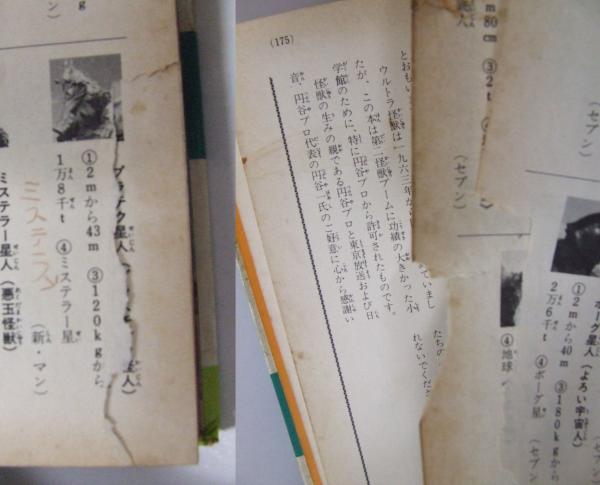 g
ン）
プラチク星人（
①2mから43m ③120kgから
1万8千t ④ミステラー星
（新・マン）
ミステラ
ミステラー星人（悪玉怪獣）
星人）
（175）
とおもい
ウルトラ怪獣は一九六三年から
たが、この本は第二怪獣ブームに功績の大きかった小
学館のために、特に円谷プロから許可されたものです。
怪獣の生みの親である円谷プロと東京放送および日
音、円谷プロ代表の円谷一氏のご好意に心から感謝い
ていまし
たちの
れないでくだ
m80cm ③2t
（セブン）
（セブン）
④地球
ボーグ星人（よろい宇宙人）
①2mから40m ③180kgから
2万6千t ④ボーグ星
（セブン）
（セブ